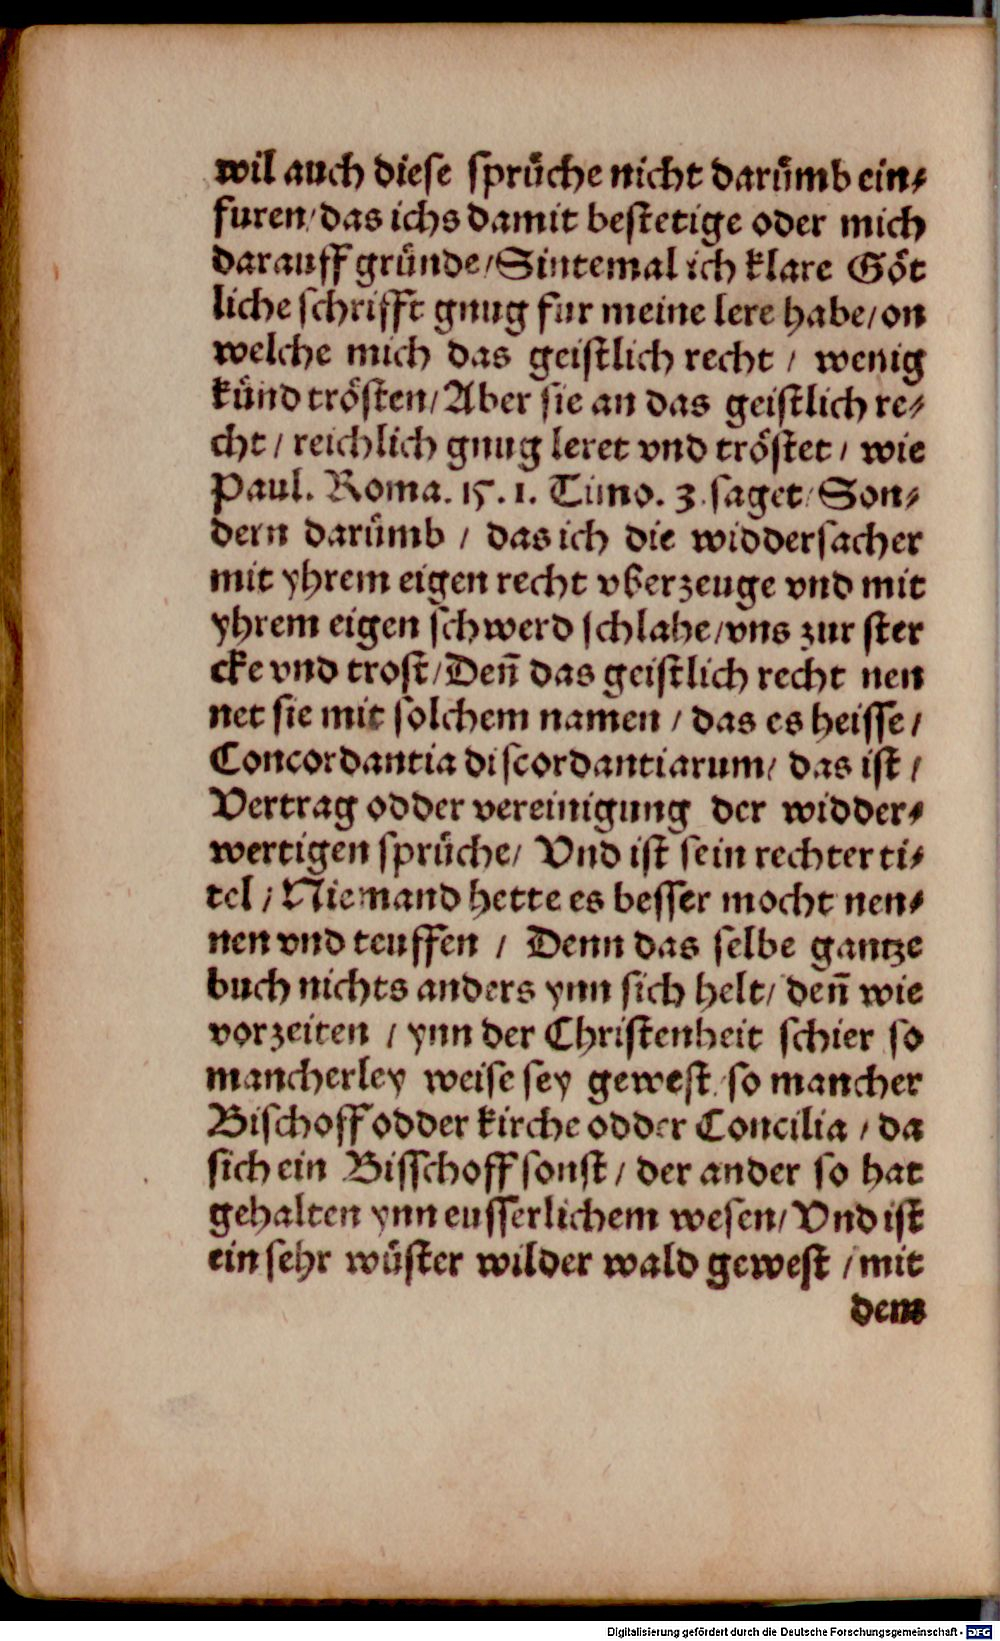 wil auch diese sprüche nicht darümb ein⸗
furen/das ichs damit bestetige oder mich
darauff gründe/Sintemal ich klare Göt
liche schrifft gnug fur meine lere habe/on
welche mich das geistlich recht / wenig
künd trösten/Aber sie an das geistlich re⸗
cht / reichlich gnug leret vnd tröstet / wie
Paul. Roma. 15. 1. Timo. 3. saget/Son⸗
dern darümb / das ich die widdersacher
mit yhrem eigen recht vberzeuge vnd mit
yhrem eigen schwerd schlahe/vns zur ster
cke vnd trost/Deñ das geistlich recht nen
net sie mit solchem namen / das es heisse /
Concordantia discordantiarum/ das ist /
Vertrag odder vereinigung der widder⸗
wertigen sprüche/ Vnd ist sein rechter ti⸗
tel / Niemand hette es besser mocht nen⸗
nen vnd teuffen / Denn das selbe gantze
buch nichts anders ynn sich helt/ deñ wie
vorzeiten / ynn der Christenheit schier so
mancherley weise sey gewest/so mancher
Bischoff odder kirche odder Concilia / da
sich ein Bisschoff sonst / der ander so hat
gehalten ynn eusserlichem wesen/Vnd ist
ein sehr wüster wilder wald gewest /mit
dem
Digitalisierung gefördert durch die Deutsche Forschungsgemeinschaft - DFG